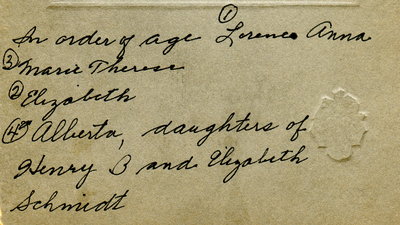 ①
In order of age Lorence Anna
③ Marie Therese
② Elizabeth
④ Alberta, daughters of
Henry B and Elizabeth
Schmidt